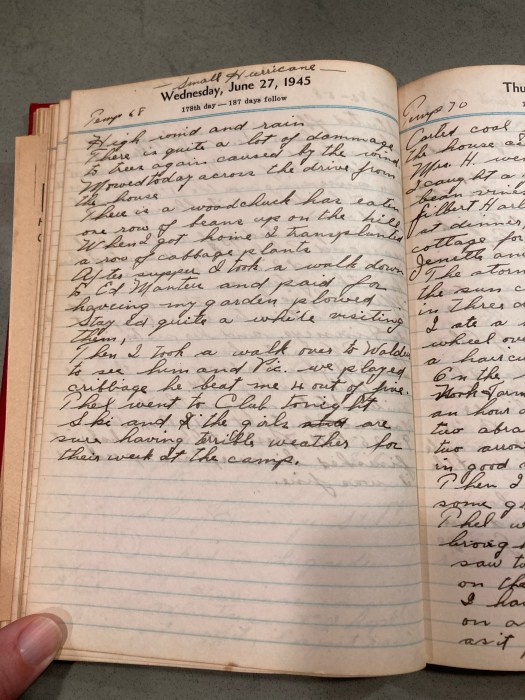 — Small Hurricane —
Wednesday, June 27, 1945
178th day — 187 days follow
Temp 68
High wind and rain
There is quite a lot of dammage
to trees again caused by the wind
Mowed today across the drive from
the house
There is a woodchuck has eaten
one row of beans up on the hill
When I got home I transplanted
a row of cabbage plants
After supper I took a walk down
to Ed and paid for
having my garden plowed
Stay ed quite a while visiting
them,
Then I took a walk over to Waldes
to see him and Vic. we played
cribbage he beat me 4 out of five.
Thel went to Club tonight
Ski and & the girls are
sure having terrible weather for
their week at the camp.
Thu
Temp 70
coal
the house a
Mrs. H. wen
I caught a
bean
Gilbert Harl
at dinner,
cottage for
and
The storm
the sun c
in three a
I ate a
wheel ove
a hairc
On the
an hour a
two
two arrow
in good
Then I
some g
Thel w
saw to
on the
I ha
on a
as it